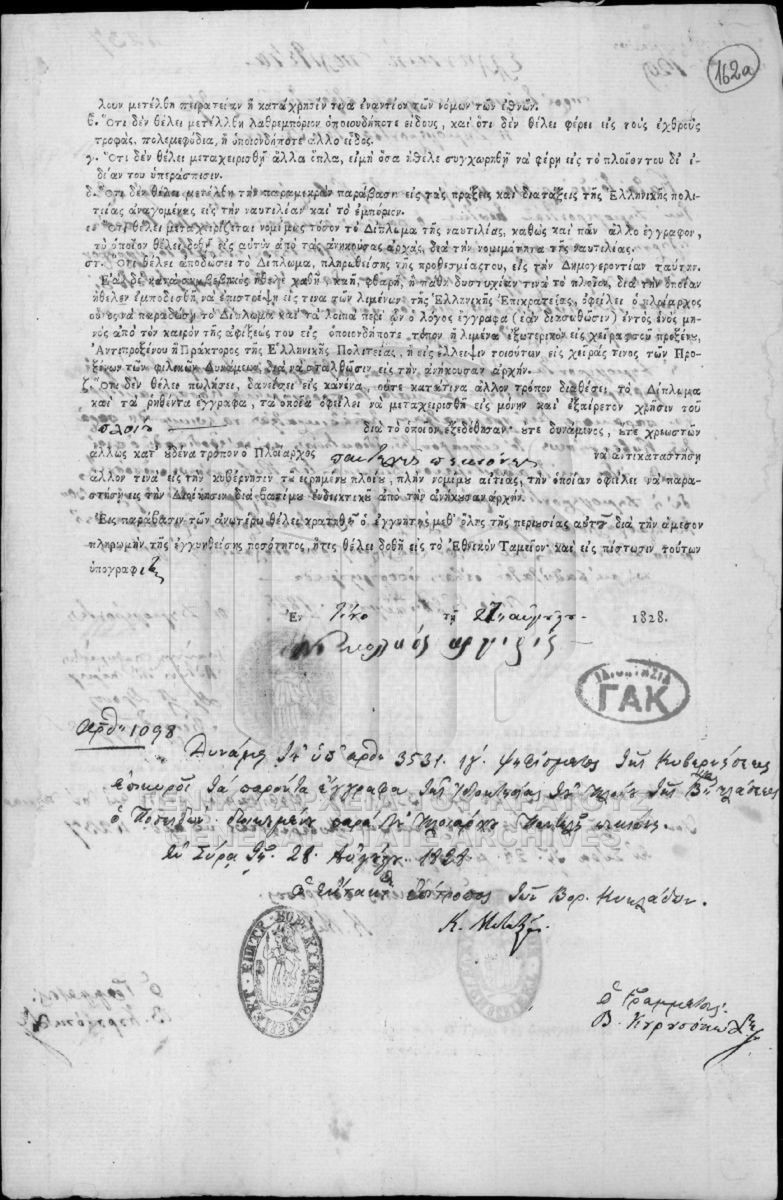 162a
λουν μετέλθη πειρατείαν ἢ κατάχρησίν τινα ἐναντίον τῶν νόμων τῶν ἐθνῶν.
β. Ὅτι δὲν θέλει μετέλλθη λαθρεμπόριον ὁποιουδήποτε εἴδους, καὶ ὅτι δὲν θέλει φέρει εἰς τοὺς ἐχθροὺς
τροφὰς, πολεμεφόδια, ἢ ὁποιονδήποτε ἄλλο εἶδος.
γ. Ὅτι δὲν θέλει μεταχειρισθῆ ἄλλα ὅπλα, εἰμὴ ὅσα ἤθελε συγχωρηθῆ νὰ φέρῃ εἰς τὸ πλοῖόν του δι' ἰ-
δίαν του ὑπεράσπισιν.
δ. Ὅτι δὲν θέλει μετέλθη τὴν παραμικρὰν παράβασιν εἰς τὰς πράξεις καὶ διατάξεις τῆς Ἑλληνικῆς πολι-
τείας ἀναγομένας εἰς τὴν ναυτιλίαν καὶ τὸ ἐμπόριον.
ε. Ὅτι θέλει μεταχειρίζεται νομίμως τόσον τὸ Δίπλωμα τῆς ναυτιλίας, καθὼς καὶ πᾶν ἄλλο ἔγγραφον,
τὸ ὁποῖον θέλει δοθῆ εἰς αὐτὸν ἀπὸ τὰς ἀνηκούσας ἀρχὰς, διὰ τὴν νομιμότητα τῆς ναυτιλίας.
στ. Ὅτι θέλει ἀποδώσει τὸ Δίπλωμα, πληρωθείσης τῆς προθεσμίας του, εἰς τὴν Δημογεροντίαν ταύτην.
Ἐὰν δὲ κατὰ συμβεβηκὸς ἤθελε χαθῆ, καῆ, φθαρῆ, ἢ πάθῃ δυστυχίαν τινὰ τὸ πλοῖον, διὰ τὴν ὁποίαν
ἤθελεν ἐμποδισθῆ νὰ ἐπιστρέψῃ εἴς τινα τῶν λιμένων τῆς Ἑλληνικῆς Ἐπικρατείας, ὀφείλει ὁ πλοίαρχος
οὗτος νὰ παραδώσῃ τὸ Δίπλωμα καὶ τὰ λοιπὰ περὶ ὧν ὁ λόγος ἔγγραφα (ἐὰν διασωθῶσιν) ἐντὸς ἑνὸς μη-
νὸς ἀπὸ τὸν καιρὸν τῆς ἀφίξεώς του εἰς ὁποιονδήποτε τόπον ἢ λιμένα ἐξωτερικὸν εἰς χεῖρας τοῦ προξένου,
Ἀντιπροξένου ἢ Πράκτορος τῆς Ἑλληνικῆς Πολιτείας, ἢ εἰς ἔλλειψιν τοιούτων εἰς χεῖράς τινος τῶν Προ-
ξένων τῶν φιλικῶν Δυνάμεων διὰ νὰ σταλθῶσιν εἰς τὴν ἀνήκουσαν ἀρχήν.
ζ. Ὅτι δὲν θέλει πωλήσει, δανείσει εἰς κανένα, οὔτε κατά τινα ἄλλον τρόπον διαθέσει τὸ Δίπλωμα
καὶ τὰ ῥηθέντα ἔγγραφα, τὰ ὁποῖα ὀφείλει νὰ μεταχειρισθῇ εἰς μόνην καὶ ἐξαίρετον χρῆσιν τοῦ
πλοίου διὰ τὸ ὁποῖον ἐξεδόθησαν· οὔτε δυνάμενος, οὔτε χρεωστῶν
ἄλλως κατ' οὐδένα τρόπον ὁ Πλοίαρχος παντελῆς νὰ ἀντικαταστήσῃ
ἄλλον τινὰ εἰς τὴν κυβέρνησιν τοῦ εἰρημένου πλοίου, πλὴν νομίμου αἰτίας, τὴν ὁποίαν ὀφείλει νὰ παρα-
στήσῃ εἰς τὴν Διοίκησιν διὰ βασίμου ἐνδεικτικοῦ ἀπὸ τὴν ἀνήκουσαν ἀρχήν.
Εἰς παράβασιν τῶν ἀνωτέρω θέλει κρατηθῆ ὁ ἐγγυητὴς μεθ' ὅλης τῆς περιουσίας αὑτοῦ διὰ τὴν ἄμεσον
πληρωμὴν τῆς ἐγγυηθείσης ποσότητος, ἥτις θέλει δοθῆ εἰς τὸ Ἐθνικὸν Ταμεῖον· καὶ εἰς πίστωσιν τούτων
ὑπογράφεται
Ἐν Τίνο τῇ 27 αὐγούστου 1828.
ΙΔΙΟΚΤΗΣΙΑ
ΓΑΚ
Ἀριθ. 1098
Δυνάμει τοῦ ὑπ' ἀρθ. 3531. ιγ'. ψηφίσματος τῆς Κυβερνήσεως
ἐπικυροῖ τὰ παρόντα ἔγγραφα τῆς ἰδιοκτησίας τοῦ πλοίου τῆς Βας κλάσεως
ὁ Ποσειδῶν
ἐν Σύρα τῇ 28. Αὐγούστου 1828
ὁ Ἔκτακτος ἐπίτροπος τῶν Βορ. Κυκλάδων.
Κ. Μεταξᾶς
ὁ Γραμματεύς.
ΓΕΝΙΚΑ ΑΡΧΕΙΑ ΤΟΥ ΚΡΑΤΟΥΣ
GENERAL STATE ARCHIVES